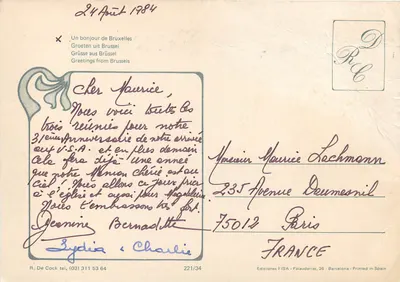 24 Août 1984
x
Un bonjour de Bruxelles
Groeten uit Brussel
Grüsse aus Brüssel
Greetings from Brussels
D
R
C
Cher Maurice,
Nous voici toutes les
trois réunies pour notre
31ème Anniversaire de notre arrivée
aux U.S.A. et en plus demain
Cela fera déjà une année
que notre Maman chérie est au
ciel. Nous allons ce jour prier
à l'église et aussi pour
Nous t'embrassons très fort.
Jeannine Bernadette
Lydia & Charlie
Monsieur Maurice Lachmann
235 Avenue Daumesnil
75012 Paris
FRANCE
A. De Cock tel. (02) 211 53 64
221/34
Ediciones FISA - Palaudarias, 26 - Barcelona - Printed in Spain